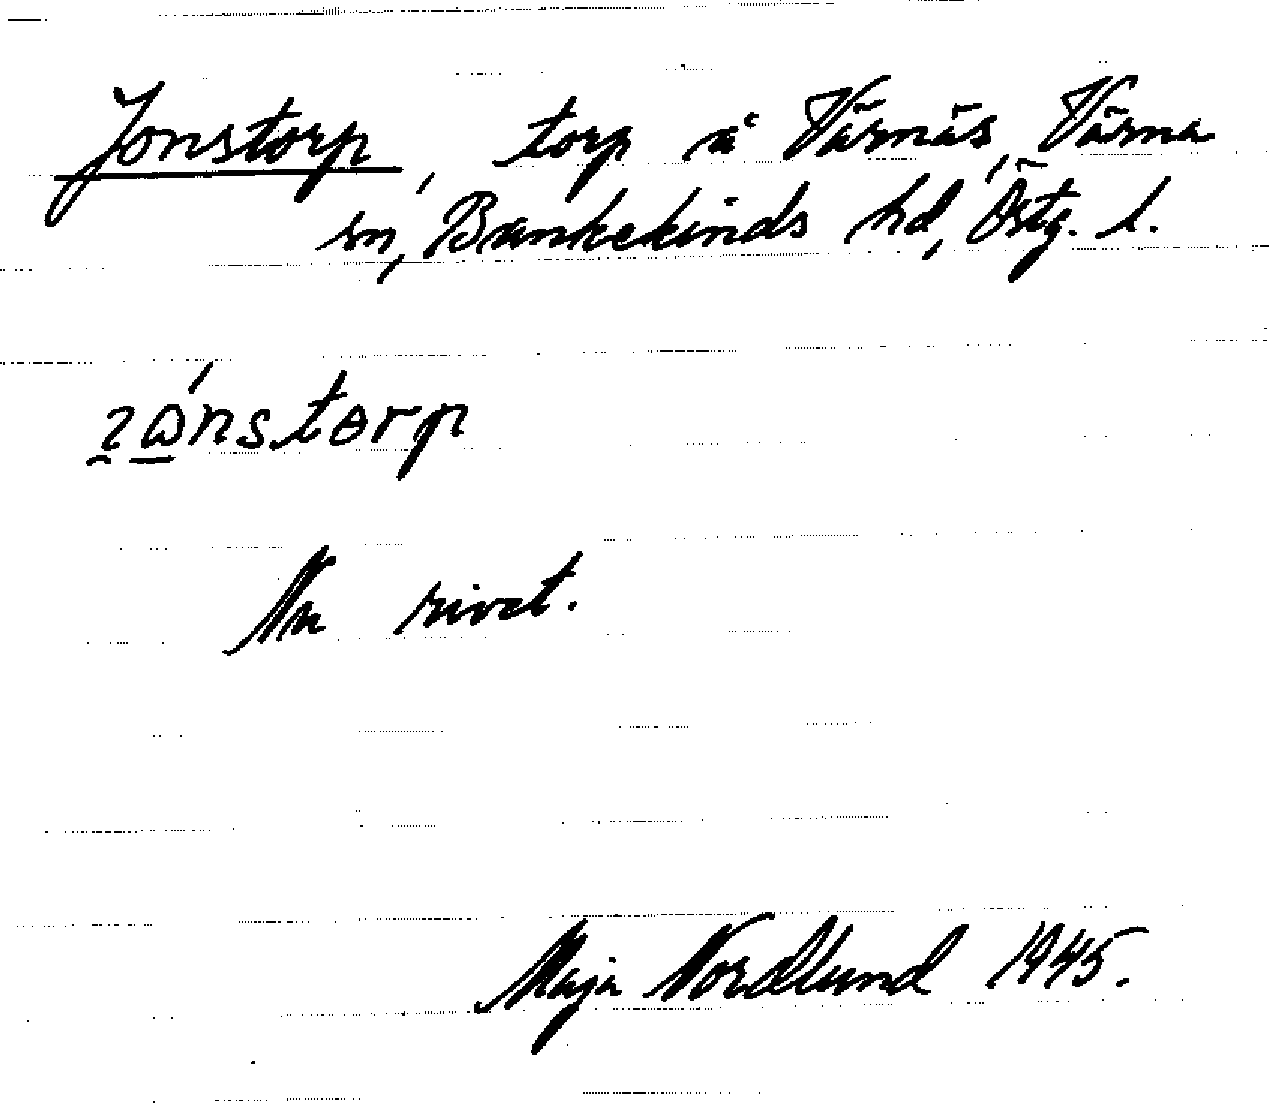 Jonstorp, torp å Värnäs, Värna
sn, Bankekinds hd, Östg. l.
Nu rivet.
Maja Nordlund 1945.